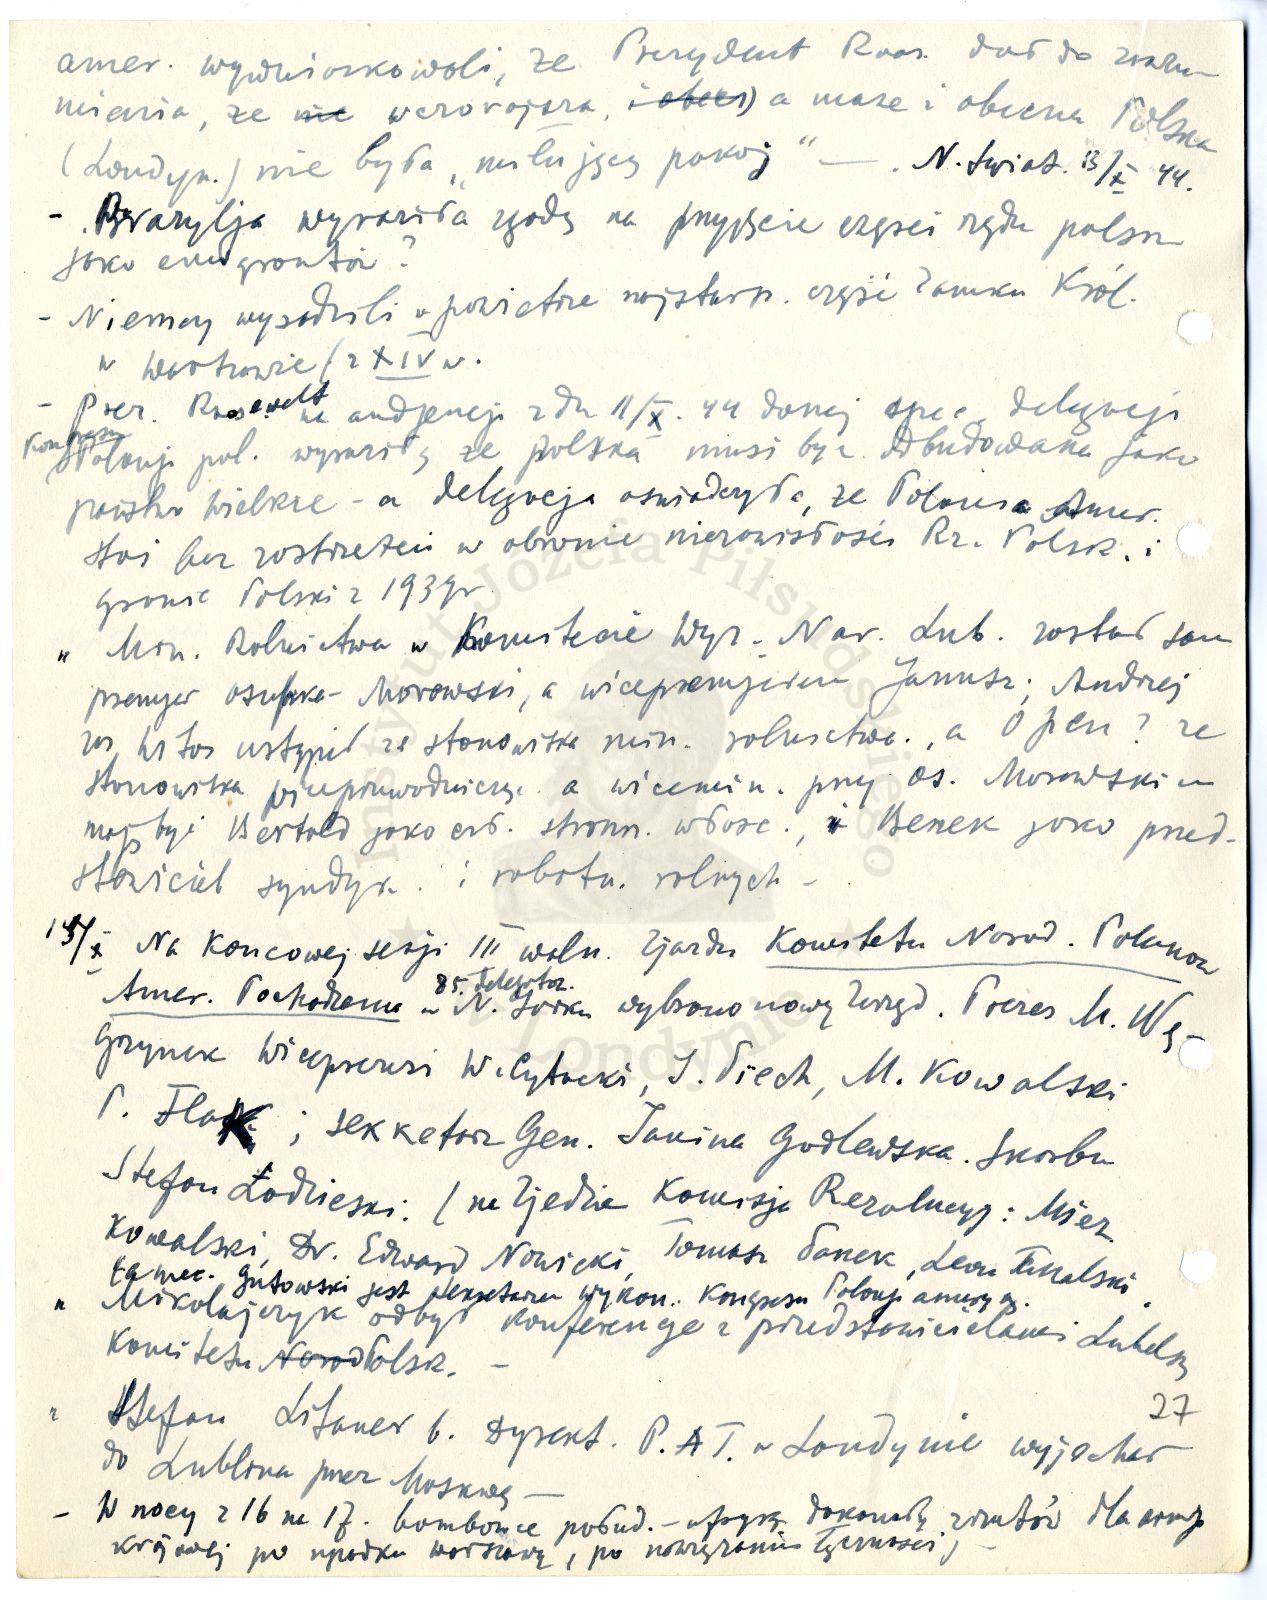 amer. wywnioskowali, że Prezydent Roos. dał do zrozu-
mienia, że nie wczorajsza, i obecn) a może i obecna Polska
(Londyn.) nie była „miłującą pokój" — . N. Świat. 13/X 44.
- Brazylja wyraziła zgodę na przyjęcie części rządu polsk
jako emigrantów?
- Niemcy wysadzili w powietrze najstarsz. część Zamku Król.
w Warszawie (z XIV w.
- Prez. Roosevelt na audjencji z dn 11/X. 44 danej spec. delegacji
Kongresu
Polonji pol. wyraził, że Polska musi być odbudowana jako
państwo wielkie - a delegacja oświadczyła, że Polonia Amer.
stoi bez zastrzeżeń w obronie niezawisłości Rz. Polsk. i
granic Polski z 1939r.
" Min. Rolnictwa w Komitecie Wyz. Nar. Lub. został sam
premjer Osubka-Morawski, a wicepremjerem Janusz; Andrzej
Witos ustąpił ze stanowiska min. rolnictwa., a ? ze
stanowiska wiceprzewodniczącego a wicemin. przy Os. Morawskim
mają być Bertold jako czł. stronn. włośc., i Benek jako przed-
stawiciel syndyk. i robotn. rolnych -
15/X Na końcowej sesji III waln. Zjazdu Komitetu Narod. Polaków
85 delegatów.
Amer. Pochodzenia w N. Jorku wybrano nowy Zarząd. Prezes M. Wę-
grzynek Wiceprezesi W. Cytacki, J. Piech, M. Kowalski
P. ; sekretarz Gen. Janina Godlewska. Skarbn
Stefan Łodzieski. (na Zjeździe Komisja Rezolucyj: Mierz.
Kowalski, Dr. Edward Nowicki, Tomasz Panek, Leon .
Gutowski jest sekretarzem wykon. Kongresu Polonji ameryk.
" Mikołajczyk odbył konferencje z przedstawicielami Lubelsk
Komitetu Narod Polsk. -
" Stefan Litauer b. Dyrekt. P.A.T. w Londynie wyjechał
27
do Lublina przez Moskwę —
- W nocy z 16 na 17. bombowce połud.-afryk. dokonały zrzutów dla armji
krajowej po upadku Warszawy, po nawiązaniu łączności, -
Instytut Józefa Piłsudskiego
w Londynie